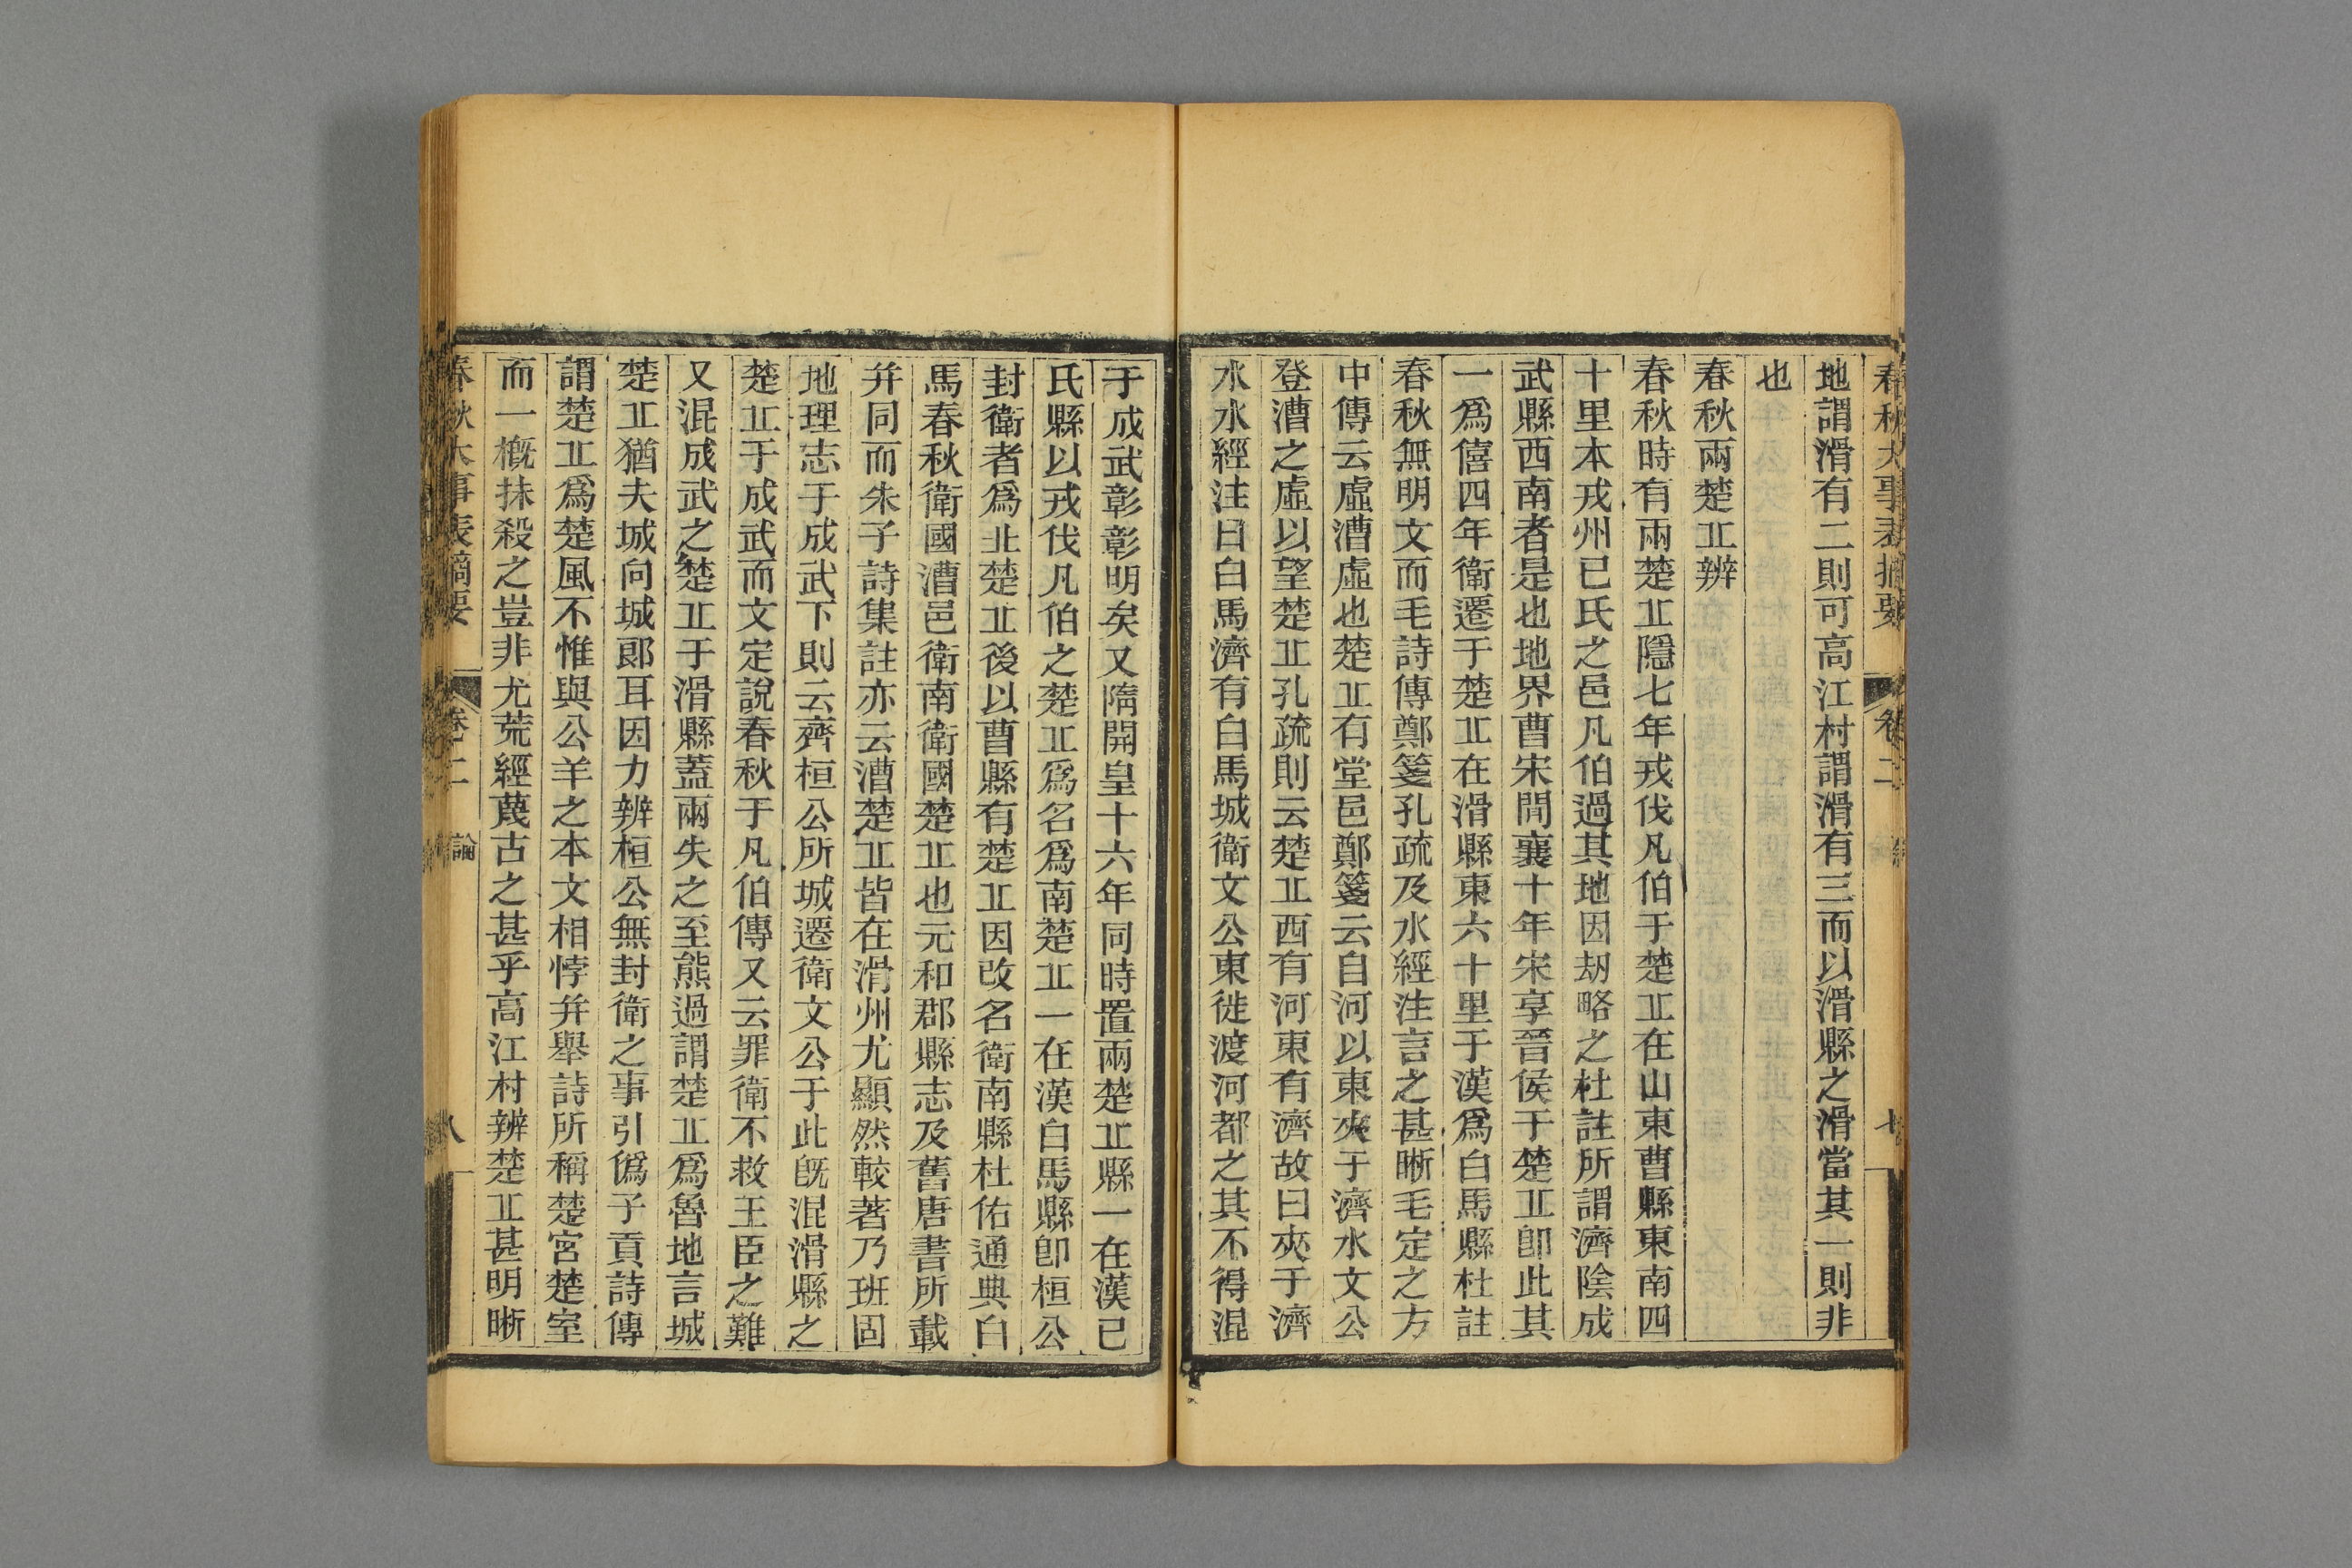 春秋大事表摘要 卷二 七
地謂滑有二則可高江村謂滑有三而以滑縣之滑當其一則非
也
春秋兩楚丠辨
春秋時有兩楚丠隱七年戎伐凡伯于楚丠在山東曹縣東南四
十里本戎州已氏之邑凡伯過其地因刼略之杜註所謂濟陰成
武縣西南者是也地界曹宋閒襄十年宋享晉侯于楚丠卽此其
一爲僖四年衛遷于楚丠在滑縣東六十里于漢爲白馬縣杜註
春秋無明文而毛詩傳鄭箋孔疏及水經注言之甚晰毛定之方
中傳云虛漕虛也楚丠有堂邑鄭箋云自河以東夾于濟水文公
登漕之虛以望楚丠孔疏則云楚丠西有河東有濟故曰夾于濟
水水經注曰白馬濟有白馬城衛文公東徙渡河都之其不得混
于成武彰彰明矣又隋開皇十六年同時置兩楚丠縣一在漢已
氏縣以戎伐凡伯之楚丠爲名爲南楚丠一在漢白馬縣卽桓公
封衛者爲北楚丠後以曹縣有楚丠因改名衛南縣杜佑通典白
馬春秋衛國漕邑衛南衛國楚丠也元和郡縣志及舊唐書所載
幷同而朱子詩集註亦云漕楚丠皆在滑州尤顯然較著乃班固
地理志于成武下則云齊桓公所城遷衛文公于此旣混滑縣之
楚丠于成武而文定說春秋于凡伯傳又云罪衛不救王臣之難
又混成武之楚丠于滑縣蓋兩失之至熊過謂楚丠爲魯地言城
楚丠猶夫城向城郞耳因力辨桓公無封衛之事引僞子貢詩傳
謂楚丠爲楚風不惟與公羊之本文相悖幷舉詩所稱楚宮楚室
而一槪抹殺之豈非尤荒經蔑古之甚乎高江村辨楚丠甚明晰
春秋大事表摘要 卷二 論 八